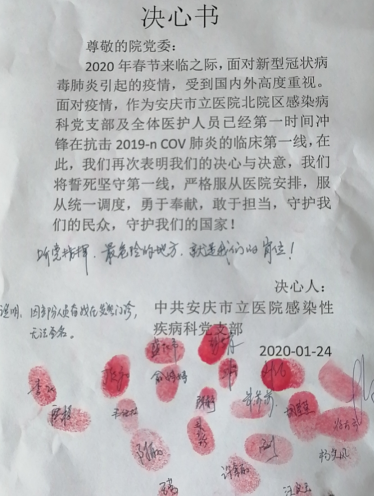 决心书
尊敬的院党委：
2020 年春节来临之际，面对新型冠状病
毒肺炎引起的疫情，受到国内外高度重视。
面对疫情，作为安庆市立医院北院区感染病
科党支部及全体医护人员已经第一时间冲
锋在抗击 2019-n COV 肺炎的临床第一线，在
此，我们再次表明我们的决心与决意，我们
将誓死坚守第一线，严格服从医院安排，服
从统一调度，勇于奉献，敢于担当，守护我
们的民众，守护我们的国家！
听党指挥，最危险的地方，就是我们的岗位！
决心人：
说明：因部份人员在发热门诊，
无法签名。
中共安庆市立医院感染性
疾病科党支部
2020-01-24